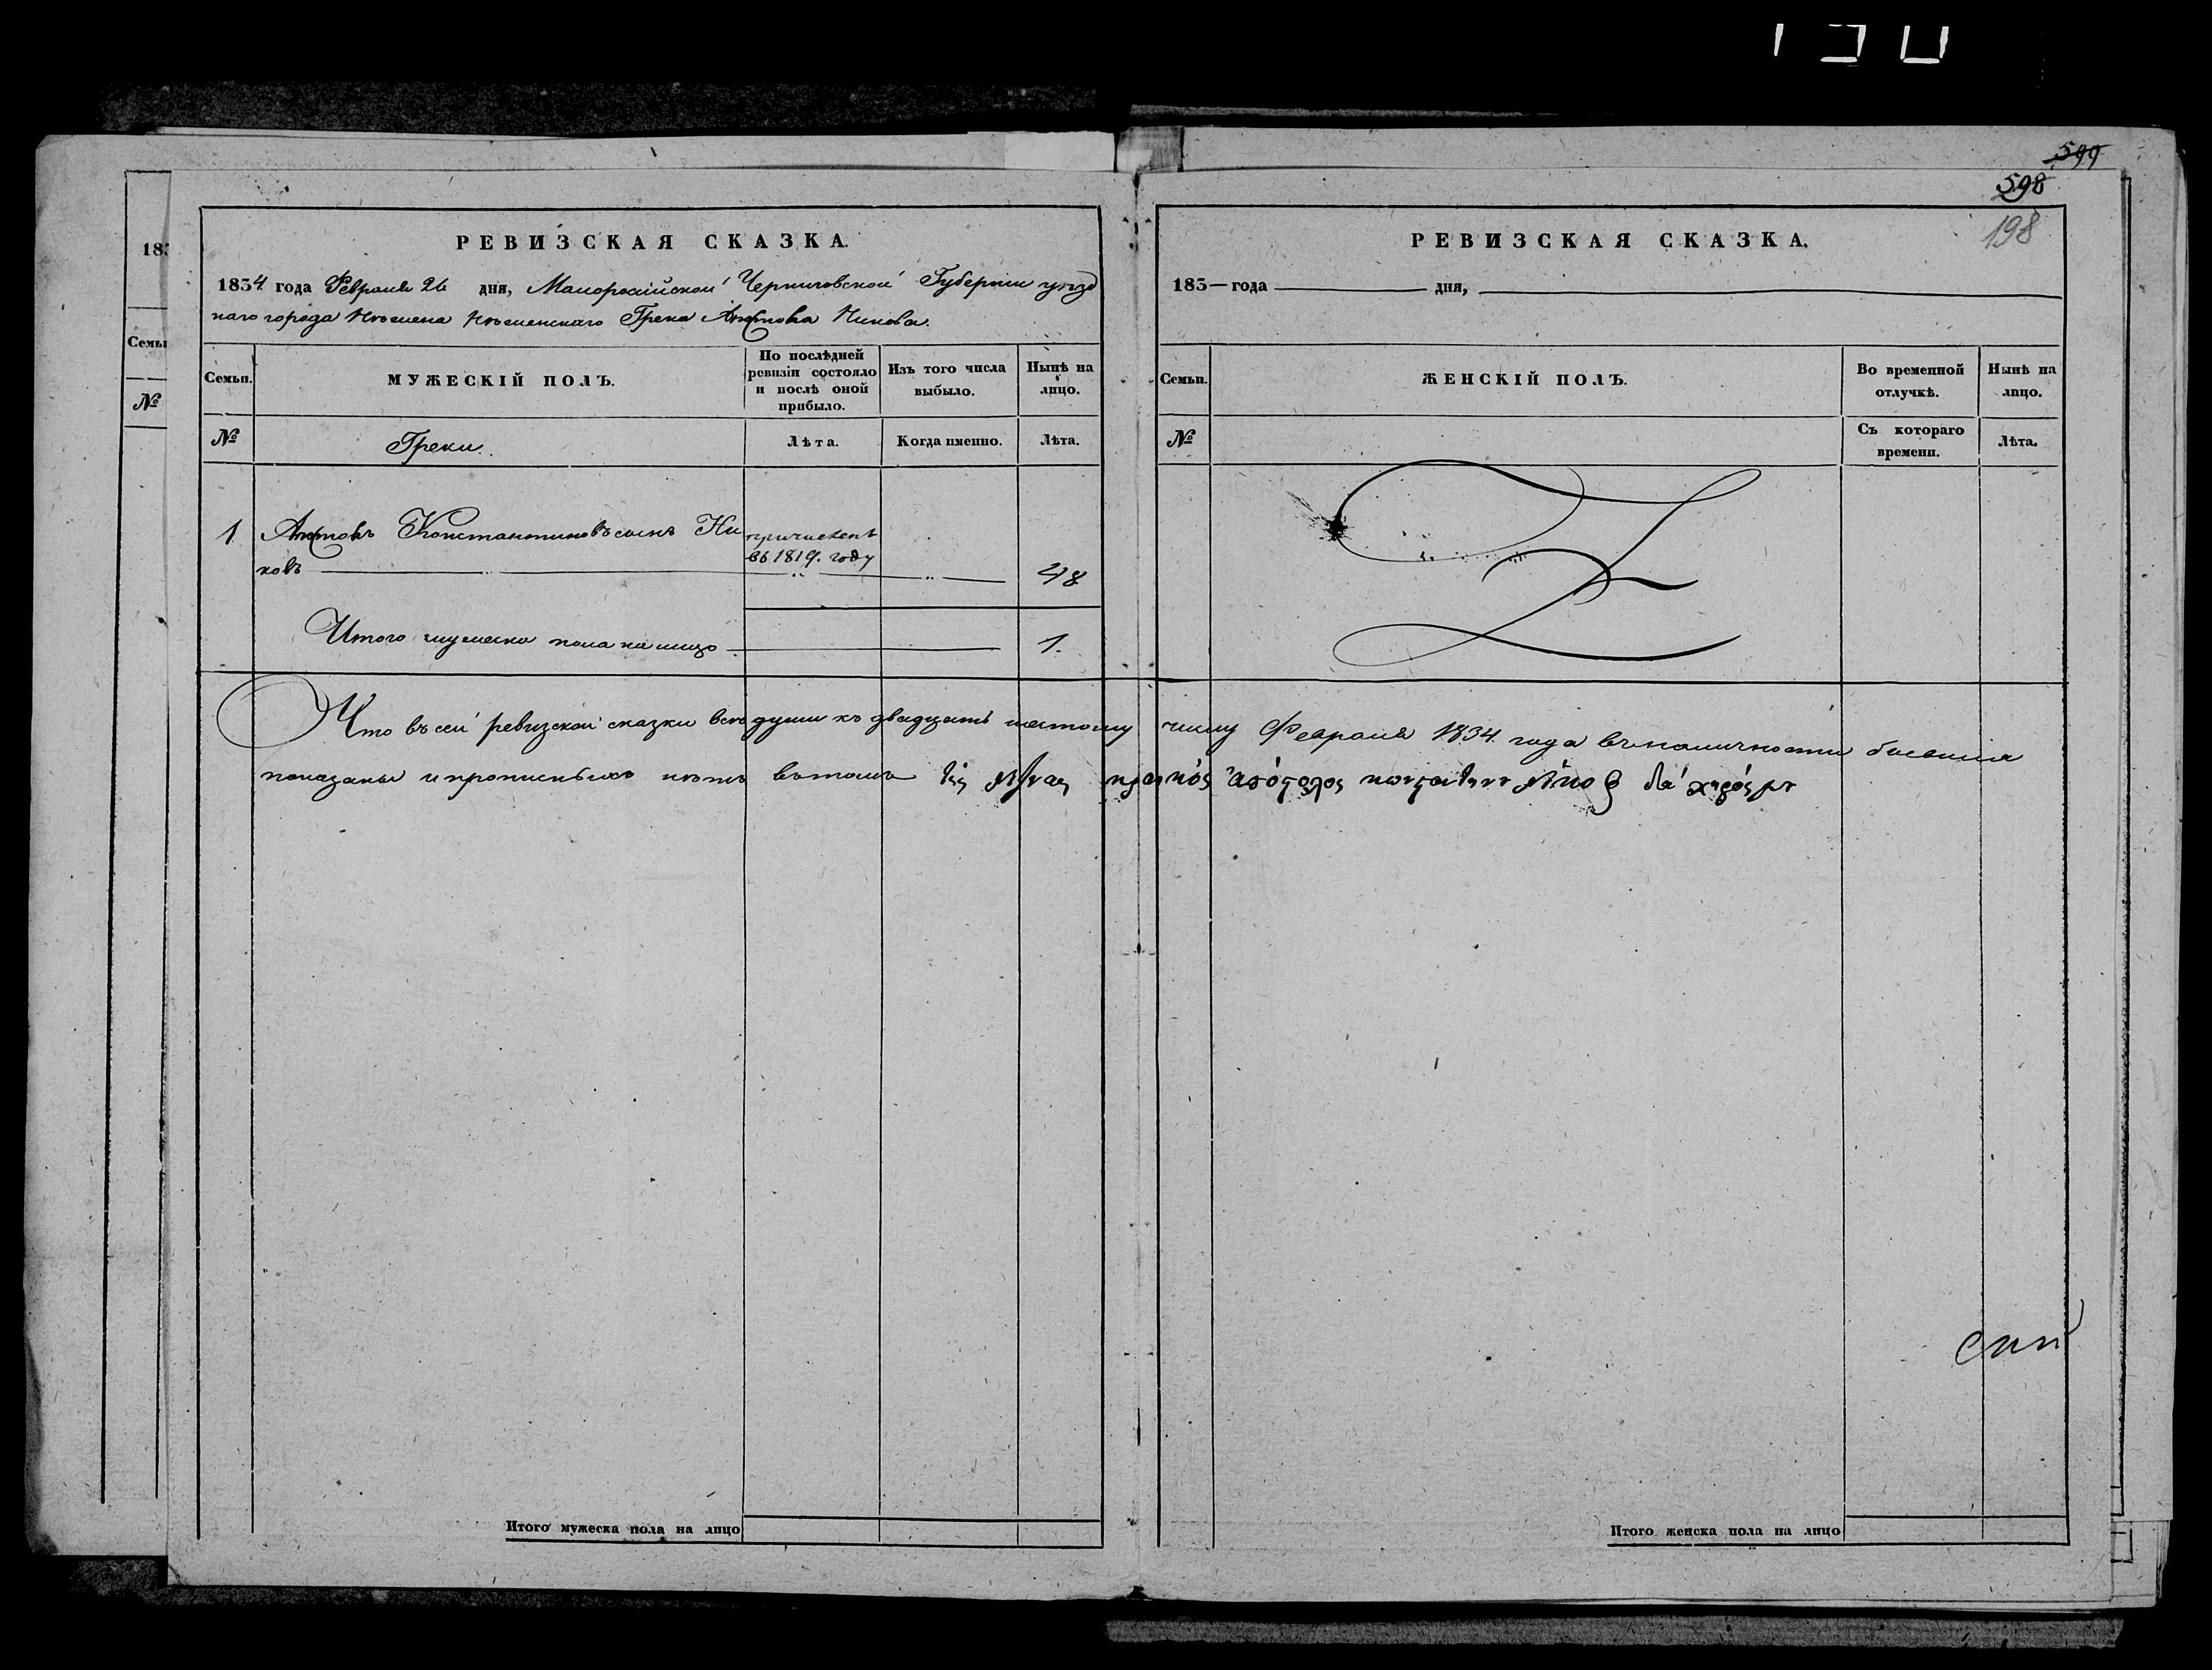 599
598
198
РЕВИЗСКАЯ СКАЗКА.
1834 года Февраля 26 дня, Малоросiйской Черниговской Губернии уѣзд
наго города Нѣжина Нѣжинскаго Грека Апостола Никова.
Семьи.
МУЖЕСКІЙ ПОЛЪ.
По послѣдней ревизіи состояло и послѣ оной прибыло.
Изъ того числа выбыло.
Нынѣ на лицо.
№
Греки.
Лѣта.
Когда именно.
Лѣта.
1
Константиновъ сынъ Ни
ковъ
причисленъ
въ 1819. году
48
Итого мужеска пола на лицо
1.
РЕВИЗСКАЯ СКАЗКА.
183— года — дня,
Семьи.
ЖЕНСКІЙ ПОЛЪ.
Во временной отлучкѣ.
Нынѣ на лицо.
№
Съ котораго времени.
Лѣта.
Что въ сей ревизской сказки всѣ души къ двадцать шестому числу Февраля 1834 года въ наличности бывшия
показаны и прописныхъ нѣтъ въ томъ ἀπόστολος νίκου
Итого мужеска пола на лицо
Итого женска пола на лицо
183
Семьи
№